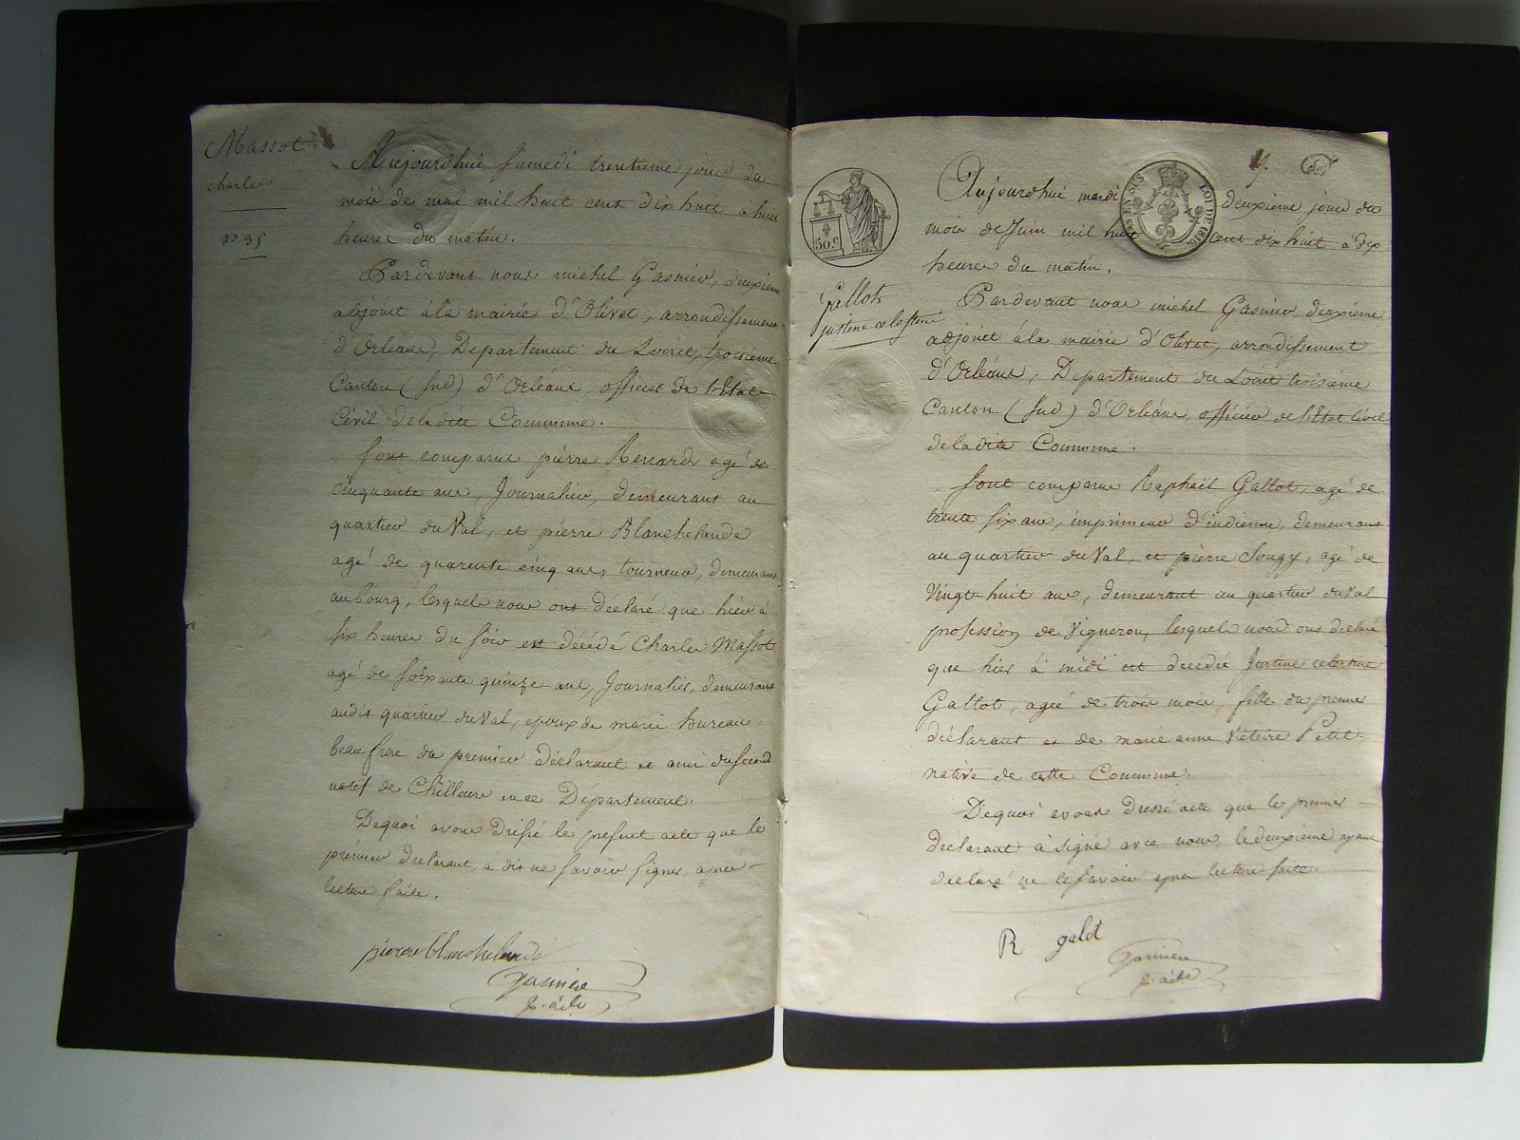 Massot
charles
n° 35
Aujourdhui Samedi trentieme jour du
mois de mai mil huit cent dix huit a huit
heures du matin.
Pardevant nous michel Gasnier, deuxieme
adjoint à la mairie d'Olivet, arrondissement
d'Orléans, Departement du Loiret, troisieme
Canton (Sud) d'Orléans, officier de l'Etat
Civil de la dite Commune.
Sont comparus pierre Renard agé de
cinquante ans, Journalier, demeurant au
quartier du Val, et pierre Blanchelande
agé de quarente cinq ans, tourneur, demeurant
au bourg, lesquels nous ont déclaré que hier à
six heures du soir est décédé Charles Massot
agé de soixante quinze ans, Journalier, demeurant
audit quartier du Val, epoux de marie bureau
beau frere du premier déclarant et ami du second
natif de Chilleurs en ce Département.
Dequoi avons dressé le present acte que le
prémier declarant, a dit ne savoir signer, apres
lecture faite.
pierre blanchelande
Gasnier
p. acte
50 c.
EN SUS
LOI DE 1816
Gallot
justine celestine
Aujourdhui mardi deuxieme jour du
mois de Juin mil huit cent dix huit à dix
heures du matin.
Pardevant nous michel Gasnier deuxiéme
adjoint à la mairie d'Olivet, arrondissement
d'Orléans, Departement du Loiret troisiéme
Canton (Sud) d'Orléans, officier de l'Etat Civil
de la dite Commune.
Sont comparus Raphaël Gallot, agé de
trente six ans, imprimeur d'indienne, demeurant
au quartier du Val, et pierre Sougy, agé de
vingt huit ans, demeurant au quartier du Val
profession de Vigneron, lesquels nous ont déclaré
que hier à midi est decedée Justine celestine
Gallot, agée de trois mois, fille du premier
déclarant et de marie anne Victoire Petit
native de cette Commune.
Dequoi avons dressé acte que le premier
declarant à signé avec nous, le deuxiéme ayant
déclaré ne le savoir apres lecture faite.
R galot
Gasnier
p. acte